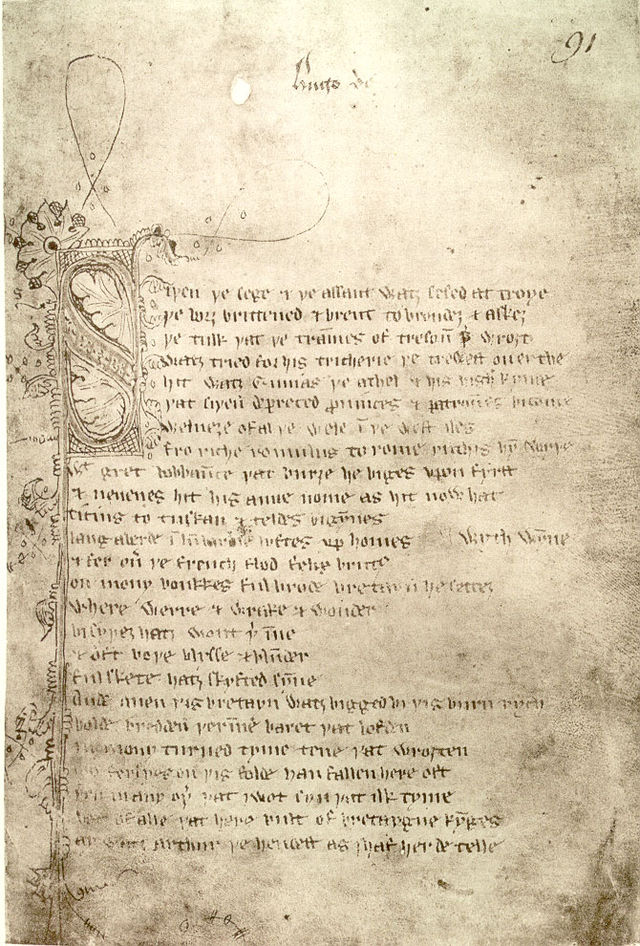 91
Siþen þe sege & þe assaut watȝ sesed at troye
þe borȝ brittened & brent to brondeȝ & askeȝ
þe tulk þat þe tra̅mes of tresoun þ̉ wroȝt
watȝ tried for his tricherie þe trewest on erthe
hit watȝ Ennias þe athel & his highe kynde
þat siþen depreced prouinces & patrou̅es bicome
welneȝe of al þe wele i̅ þe west iles
fro riche romulus to rome ricchis hy̅ swyþe
wt gret bobbau̅ce þat burȝe he biges vpon fyrst
& neuenes hit his aune nome as hit now hat
ticius to tuskan & teldes bigy̅nes
langaberde i̅ lu̅bardie lyftes vp homes wyth wy̅ne
& fer oủ þe french flod felix brutus
on mony bonkkes ful brode bretayn he setteȝ
where werre & wrake & wonder
bi syþeȝ hatȝ wont þ̉ i̅ne
& oft boþe blysse & blu̅der
ful skete hatȝ skyfted sy̅ne
Ande quen þis bretayn watȝ bigged bi þis burn rych
bolde bredden þeri̅ne baret þat lofden
in mony turned tyme tene þat wroȝten
mo ferlyes on þis folde han fallen here oft
þen in any oþ̉ þat I wot syn þat ilk tyme
bot of alle þat here bult of bretaygne ky̅ges
ay watȝ arthur þe hendest as I haf herde telle